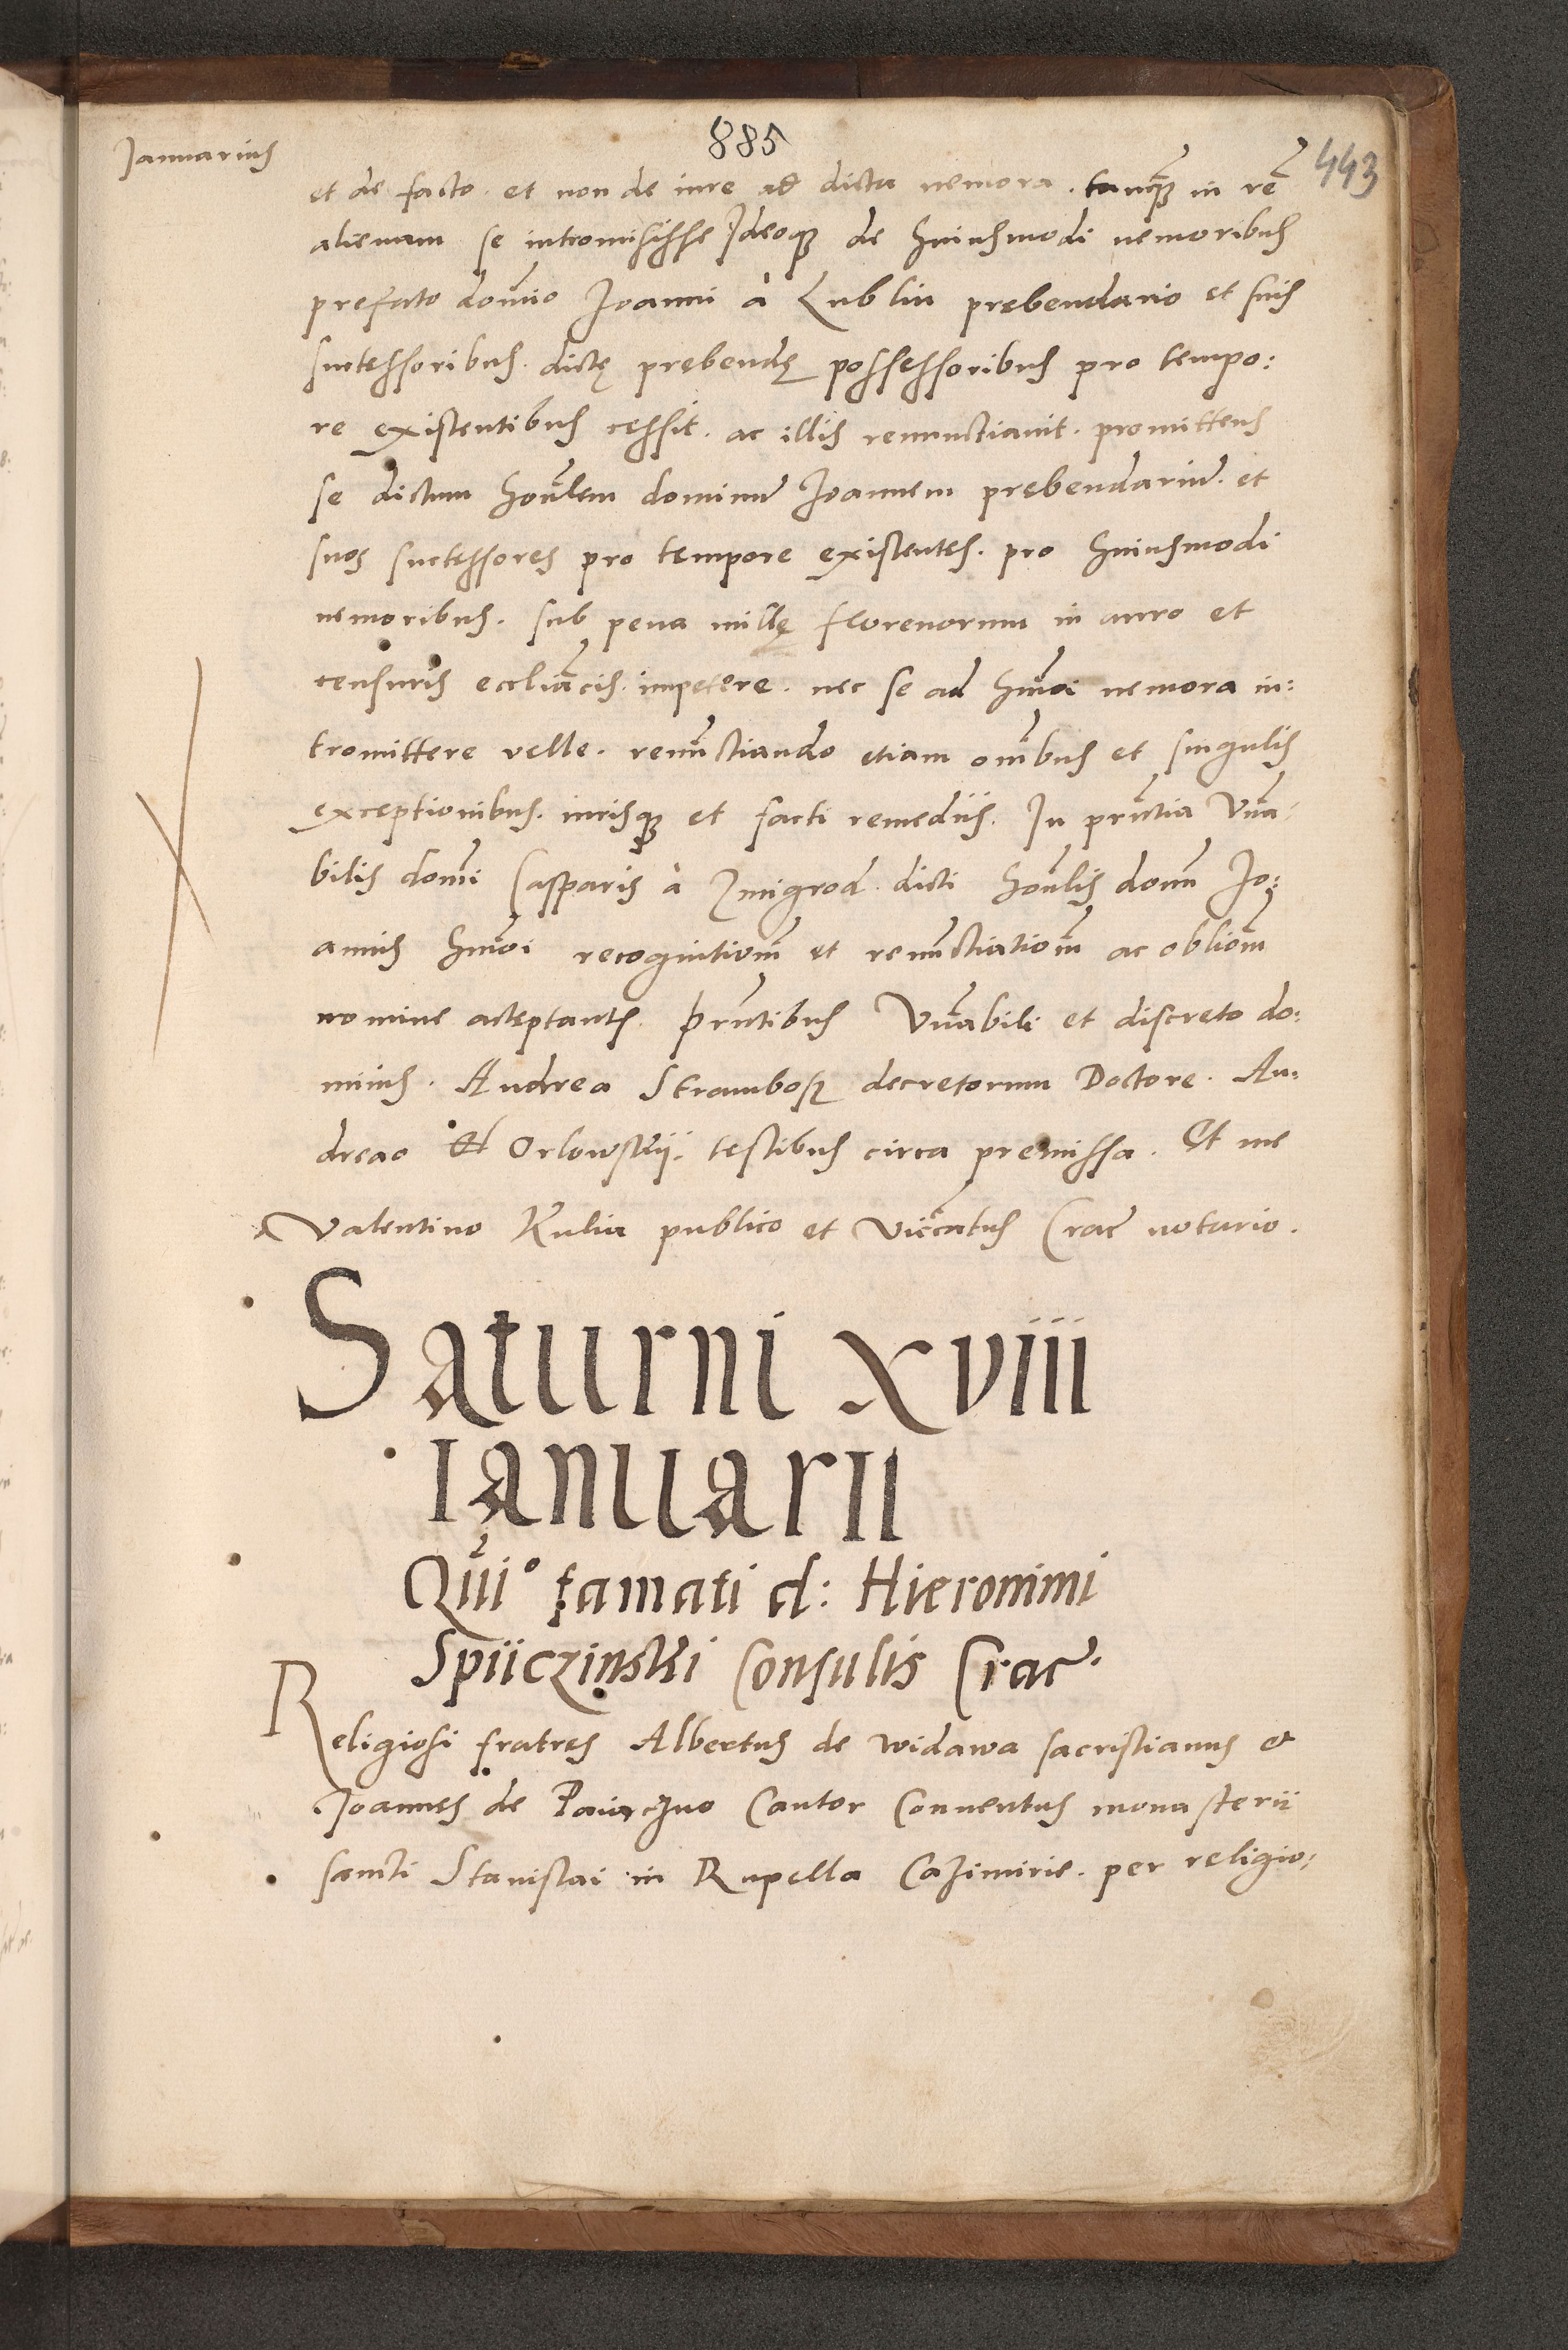 Januarius
885
443
et de facto. et non de iure ad dicta nemora. tanq̃ in rẽ
alienam se intromisisse Ideoq de huiusmodi nemoribus
prefato dom̃io Joanni à Lublin prębendario et suis
successoribus. dictę prębendę possessoribus pro tempo:
re existentibus cessit. ac illis renunctiauit. promittens
se dictum hon̄lem dominũ Joannem prębendariũ. et
suos successores pro tempore existentes. pro huiusmodi
nemoribus. sub pena millę florenorum in auro et
censuris eccliãcis. impetere. nec se ad hm̃oi nemora in:
tromittere velle. renũctiando etiam om̃ibus et singulis
exceptionibus. iurisq et facti remediis. In prñtia Vña
bilis domĩ Casparis à Zmigrod. dicti hon̄lis dom̃ Jo:
annis hm̃oi recognitiom̃ et renũctiatiom̃ ac obliom̃
nomine acceptantis. Prñtibus Vñabili et discreto do:
minis. Andrea Strambosz decretorum Doctore. An:
dreao Orlowskij. testibus circa premissa. Et me
Valentino Kulia publico et Vicc̃atus Crac̃ notario.
Saturni xviii
Ianuarii
Qũi° famati d: Hieronimi
Spiiczinski Consulis Crac̃.
Religiosi fratres Albertus de Widawa sacristianus et
Joannes de Paiaczno Cantor Conuentus monasterii
sancti Stanislai in Rupella Cazimirie. per religio: